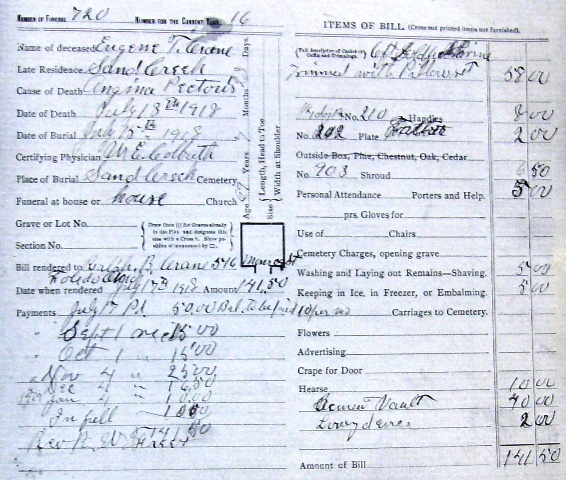 NUMBER OF FUNERAL 720 NUMBER FOR THE CURRENT YEAR 16
Name of deceased Eugene T. Crane
Late Residence Sand Creek
Cause of Death Angina Pectoris
Date of Death July 13th 1918
Date of Burial July 15th 1918
Certifying Physician
Place of Burial Sand Creek Cemetery
Funeral at house or house Church
Grave or Lot No.
Section No.
Draw lines for Graves already in the Plot and designate this one with a Cross †. Show position of monument by □.
Age Years Months Days
Size Length, Head to Toe
Width at Shoulder
Bill rendered to Ralph B. Crane 516
Toledo Ohio
Date when rendered July 17th 1918 Amount 141.50
Payments July 17 Pd 50.00 Bal. To be paid 10 per mo
" Sept 1 15.00
" Oct 1 " 15.00
" Nov 4 " 25.00
" Dec 4 "
1919 Jan 4 " 10.00
In full
Rev
ITEMS OF BILL (Cross out printed items not furnished).
Full Description of Casket or Coffin and Trimmings
trimmed with 58 00
No. 210 Handles 8 00
No. 202 Plate Father 2 00
Outside Box, Pine, Chestnut, Oak, Cedar
No. 903 Shroud 6 50
Personal Attendance Porters and Help. 5 00
prs. Gloves for
Use of Chairs
Cemetery Charges, opening grave
Washing and Laying out Remains—Shaving. 5 00
Keeping in Ice, in Freezer, or Embalming. 5 00
Carriages to Cemetery.
Flowers
Advertising
Crape for Door
Hearse 10 00
Cement Vault 40 00
Lowg device 2 00
Amount of Bill 141 50